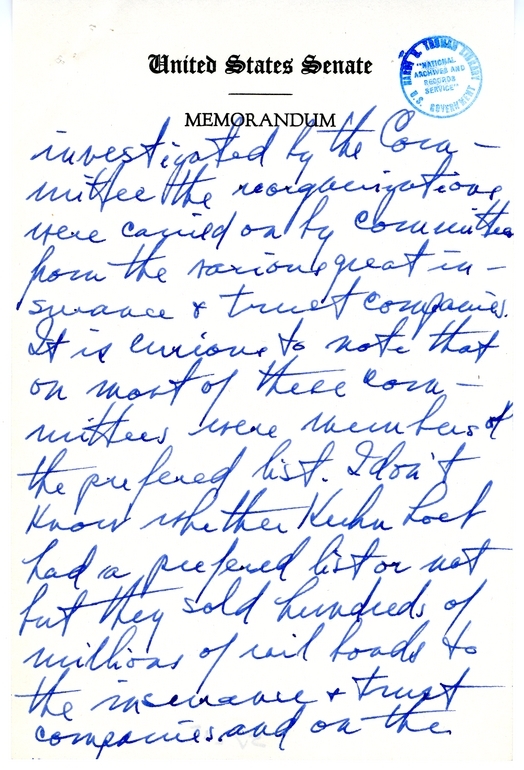 United States Senate
HARRY S. TRUMAN LIBRARY
"NATIONAL
ARCHIVES AND
RECORDS
SERVICE"
U.S. GOVERNMENT
MEMORANDUM
investigated by the Com-
mittee the reorganizations
were carried on by committees
from the various great in-
surance & trust companies.
It is curious to note that
on most of these com-
mittees were members of
the prefered list. I don't
know whether Kuhn Loeb
had a prefered list or not
but they sold hundreds of
millions of rail bonds to
the insurance & trust
companies and on the